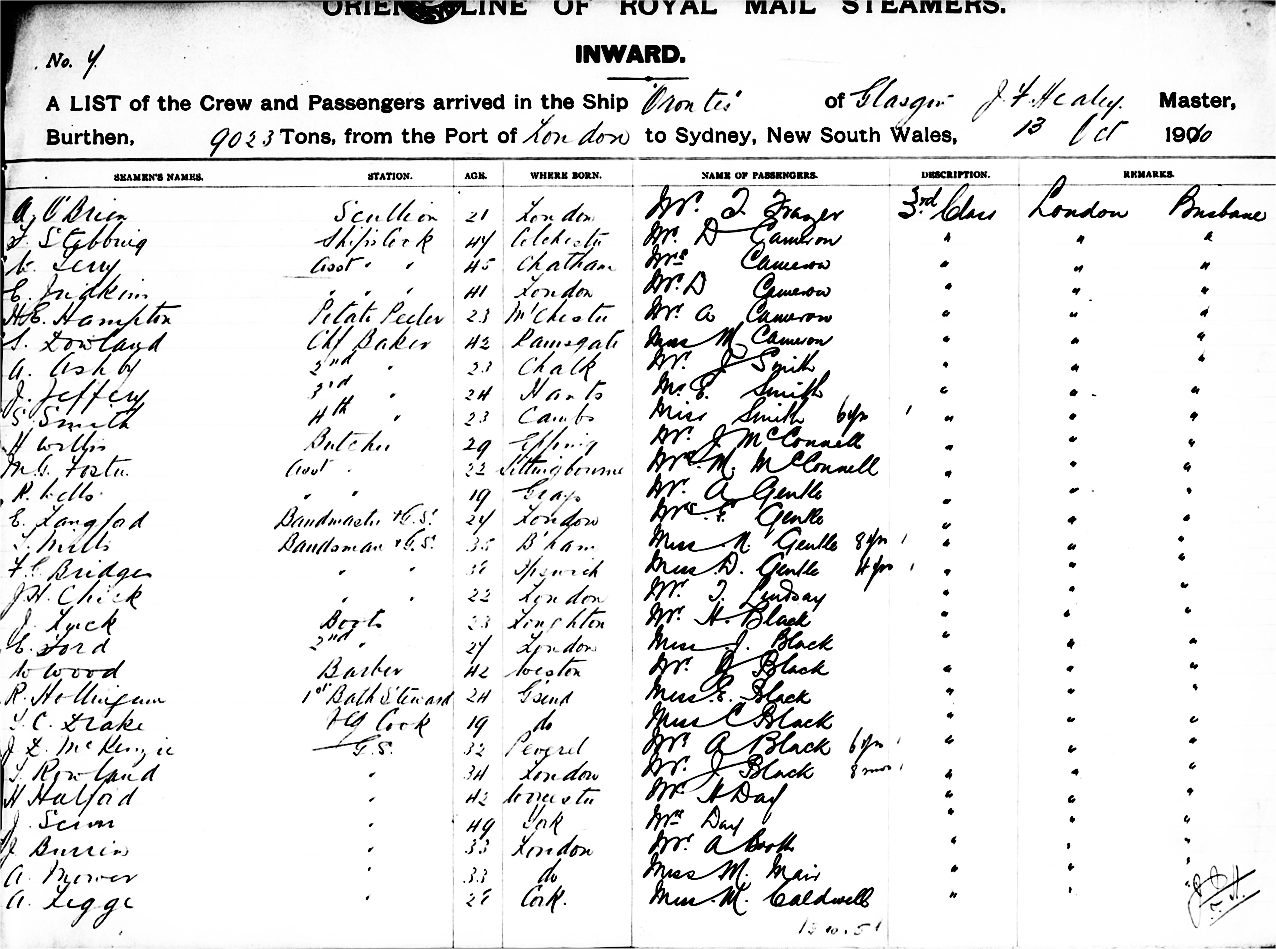 ORIENT LINE OF ROYAL MAIL STEAMERS.
No. 4
INWARD.
A LIST of the Crew and Passengers arrived in the Ship Orontes of Glasgow J F Healey. Master,
Burthen, 9023 Tons, from the Port of London to Sydney, New South Wales, 13 Oct 1906
SEAMEN'S NAMES. STATION. AGE. WHERE BORN. NAME OF PASSENGERS. DESCRIPTION. REMARKS.
A. O'Brien Scullion 21 London Mr. T. Frazer 3rd Class London Brisbane
F. Stebbing Ship's Cook 44 Colchester Mr. D Cameron " " "
Terry Asst " " 45 Chatham Mrs Cameron " " "
E. Judkins " " " 41 London Mr. D Cameron " " "
H.E. Hampton Potato Peeler 23 M'Chester Mr. A Cameron " " "
S. Dowland Chf Baker 42 Ramsgate Miss M Cameron " " "
A. Ashby 2nd " 23 Chalk Mr. J Smith " " "
J. Jeffery 3rd " 24 Hants E. Smith " " "
S. Smith 4th " 23 Cambs Miss Smith 6yrs " " "
H Willis Butcher 29 Epping Mr. J McConnell " " "
Foster Asst " 22 Sittingbourne Mrs M. McConnell " " "
R. Wells " " 19 Grays Mr. A Gentle " " "
E. Langford Bandmaster + G.S. 24 London Mrs E. Gentle " " "
Mills Bandsman + G.S. 35 B'ham Miss N Gentle 8yrs " " "
Bridges " " Ipswich Miss D. Gentle 4yrs " " "
J.H. Chick " " 22 London Mr. T. Lindsay " " "
J. Luck Boots 23 Loughton Mr. H. Black " " "
Ford 2nd " 27 London Miss J. Black " " "
W Wood Barber 42 Weston Mr. Black " " "
R. Hollingum 1st Bath Steward 24 G'send Miss E. Black " " "
Drake Cook 19 do Miss C Black " " "
McKenzie G.S. 32 Peverel A Black 6yrs " " "
Rowland " 34 London Mr. J Black 8 mos " " "
H Halford " 42 Worcester Mr. H Day " " "
J. " 49 York Mrs Day " " "
J. Burrin " 33 London Mr. A Booth " " "
A. Mower " 33 do Miss M. Mair " " "
A. Legge " Cork. Miss M. Caldwell " "